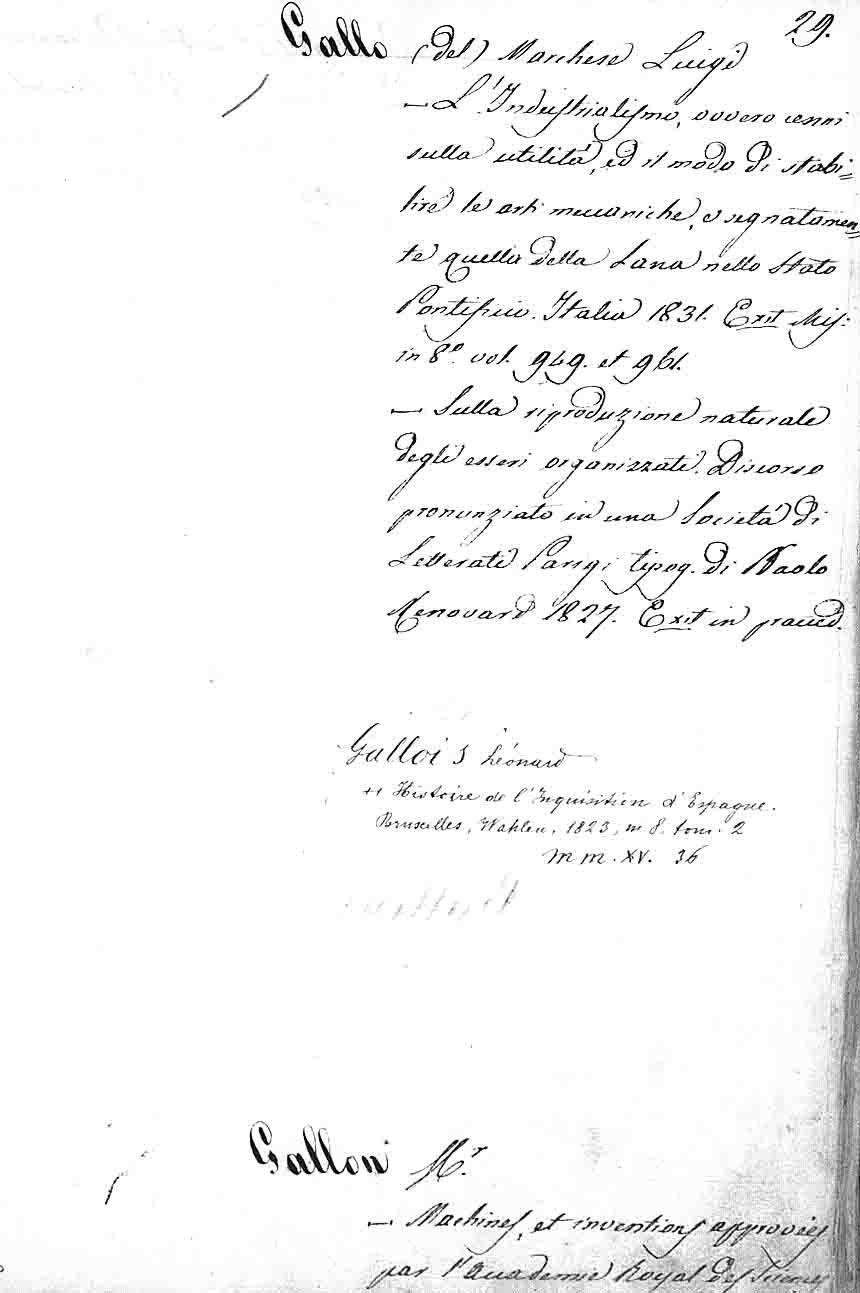 29.
Gallo (del) Marchese Luigi
— L'Industrialismo, ovvero cenni
sulla utilità, ed il modo di stabi=
lire le arti meccaniche, e segnatamen=
te quella della Lana nello Stato
Pontificio. Italia 1831. Exit Mis:
in 8.º vol. 949. et 961.
— Sulla riproduzione naturale
degli esseri organizzati. Discorso
pronunziato in una Società di
Letterati Parigi tipog. di Paolo
Renouard 1827. Exit in praeced.
Gallois Léonard
++ Histoire de l'Inquisition d'Espagne.
Bruxelles, Wahlen, 1823, in 8. tom. 2
mm. XV. 36
Gallon M.r
— Machines, et inventions approvées
par l'Academie Royal des Siences